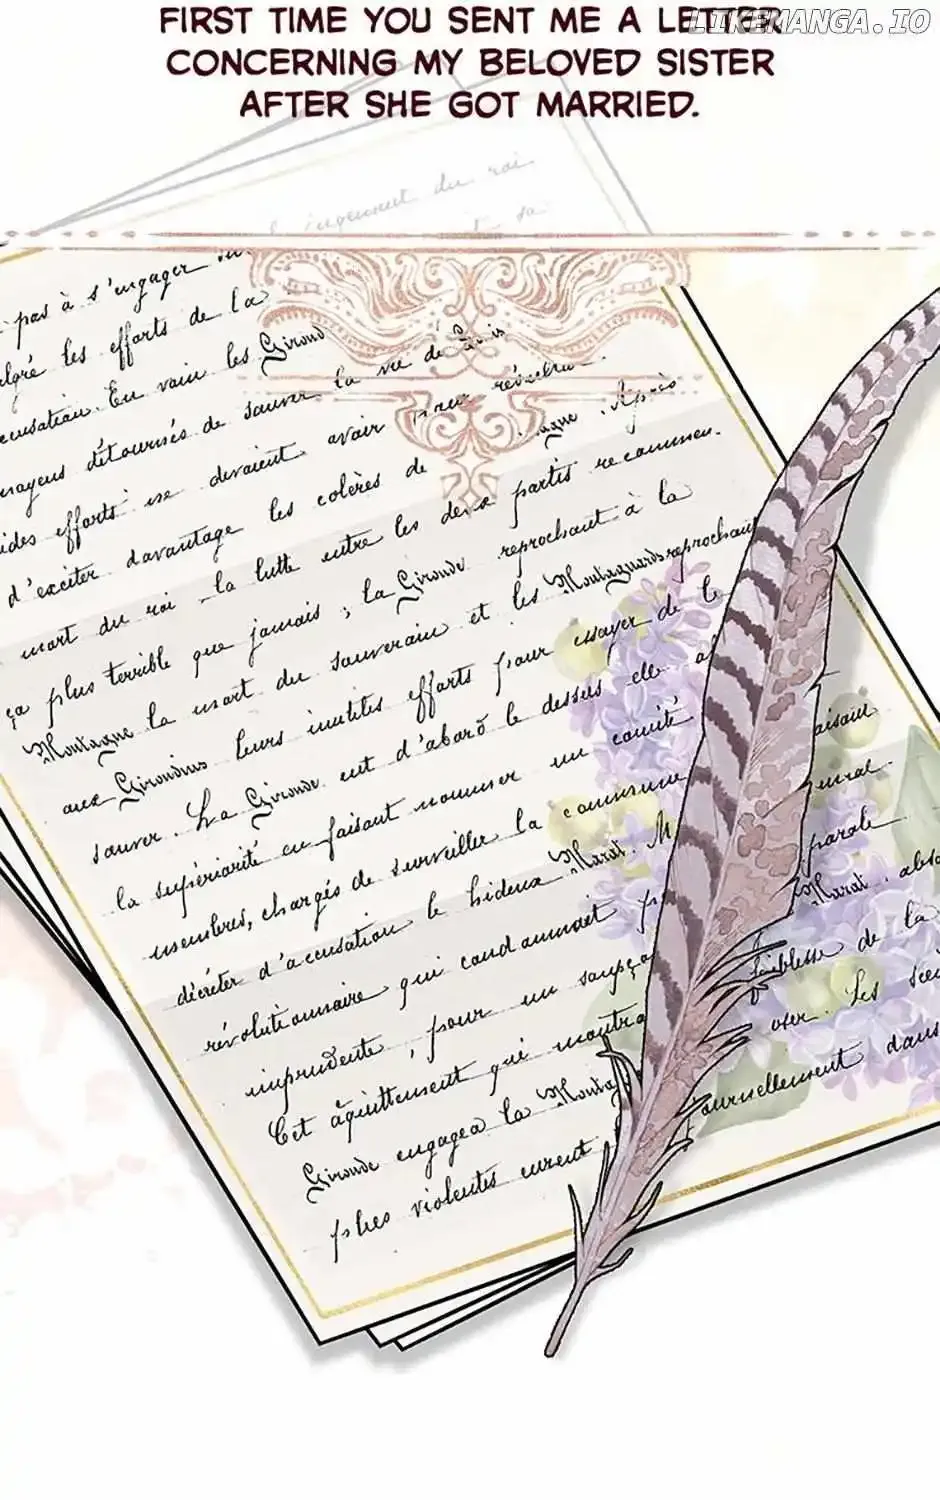 FIRST TIME YOU SENT ME A LETTER
LIKEMANGA.IO
CONCERNING MY BELOVED SISTER
AFTER SHE GOT MARRIED.
jugement du roi
pas à s'engager
les efforts de la
En vain les Girond
détournés de sauver la vie de
efforts ne devaient avoir pour
d'exciter davantage les colères de Après
mort du roi la lutte entre les deux partis recommen
ça plus terrible que jamais ; la Gironde reprochant à la
Montagne la mort du souverain et les Montagnards reprochant
aux Girondins leurs inutiles efforts pour essayer de le
sauver. La Gironde eut d'abord le dessus elle
la supériorité en faisant nommer un comité faisant
membres, chargés de surveiller la commune
décréter d'accusation le hideux Marat. parole
révolutionnaire qui condamnait Marat
imprudente, pour un faiblesse de la
Cet acquittement qui montra oser. Les
Gironde engagea la journellement dans
plus violentes eurent